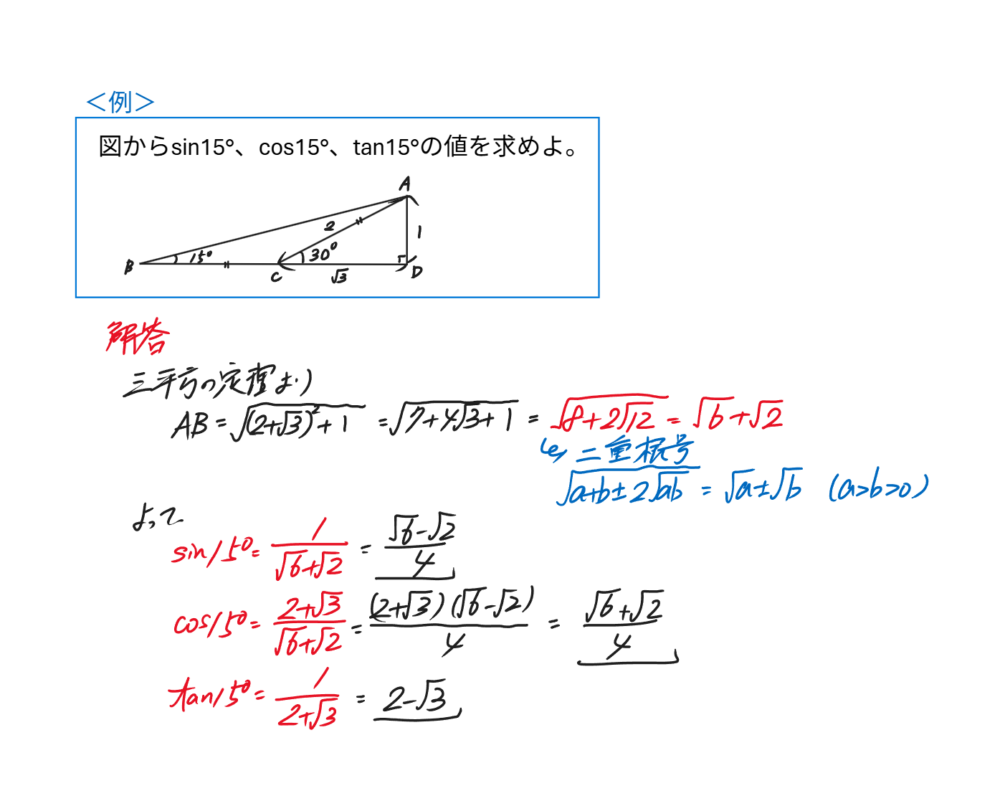 ＜例＞
図からsin15°、cos15°、tan15°の値を求めよ。
A
2
1
B 15° C 30° D
√3
解答
三平方の定理より
AB=√((2+√3)²+1) =√(7+4√3+1) = √(8+2√12) = √6+√2
↳ 二重根号
√(a+b±2√ab) = √a±√b (a>b>0)
よって
sin15°= 1/(√6+√2) = (√6-√2)/4
cos15°= (2+√3)/(√6+√2) = (2+√3)(√6-√2)/4 = (√6+√2)/4
tan15°= 1/(2+√3) = 2-√3